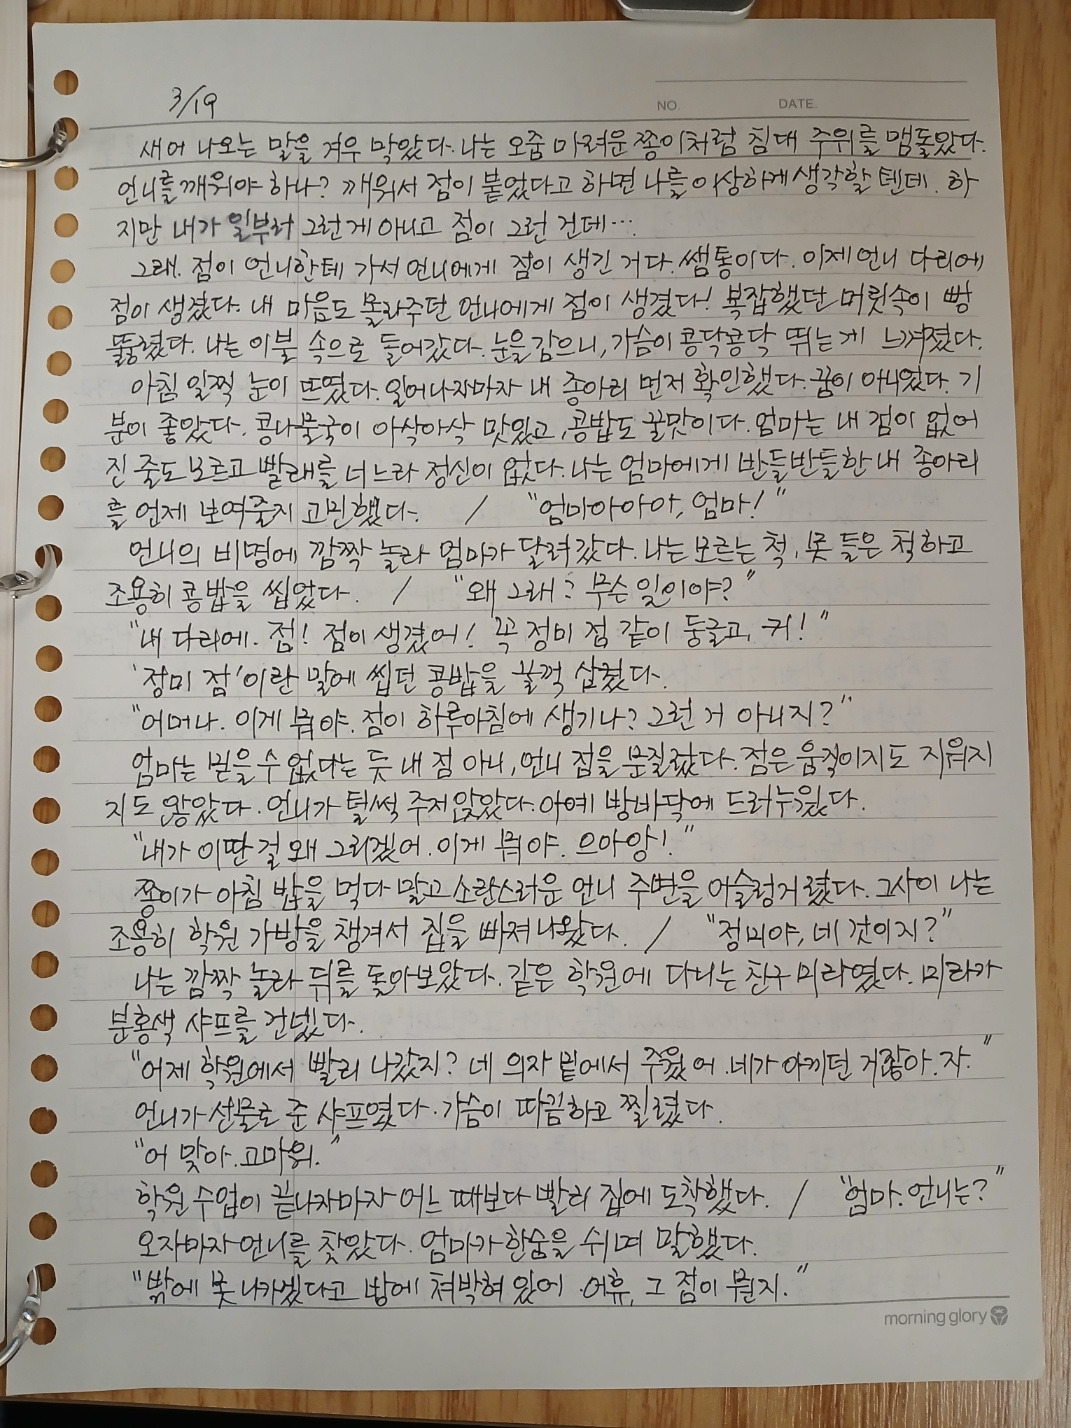 3/19
NO. DATE.
새어 나오는 말을 겨우 막았다. 나는 오줌 마려운 쫑이처럼 침대 주위를 맴돌았다.
언니를 깨워야 하나? 깨워서 점이 붙었다고 하면 나를 이상하게 생각할 텐데. 하
지만 내가 일부러 그런 게 아니고 점이 그런 건데…
그래. 점이 언니한테 가서 언니에게 점이 생긴 거다. 쌤통이다. 이제 언니 다리에
점이 생겼다. 내 마음도 몰라주던 언니에게 점이 생겼다! 복잡했던 머릿속이 빵
뚫렸다. 나는 이불 속으로 들어갔다. 눈을 감으니, 가슴이 콩닥콩닥 뛰는 게 느껴졌다.
아침 일찍 눈이 뜨였다. 일어나자마자 내 종아리 먼저 확인했다. 꿈이 아니었다. 기
분이 좋았다. 콩나물국이 아삭아삭 맛있고, 콩밥도 꿀맛이다. 엄마는 내 점이 없어
진 줄도 모르고 빨래를 너느라 정신이 없다. 나는 엄마에게 반들반들한 내 종아리
를 언제 보여줄지 고민했다. / "엄마아아아, 엄마!"
언니의 비명에 깜짝 놀라 엄마가 달려갔다. 나는 모르는 척, 못 들은 척하고
조용히 콩밥을 씹었다. / "왜 그래? 무슨 일이야?"
"내 다리에. 점! 점이 생겼어! 꼭 정미 점 같이 둥글고, 커!"
'정미 점'이란 말에 씹던 콩밥을 꿀꺽 삼켰다.
"어머나. 이게 뭐야. 점이 하루아침에 생기나? 그런 거 아니지?"
엄마는 믿을 수 없다는 듯 내 점 아니, 언니 점을 문질렀다. 점은 움직이지도 지워지
지도 않았다. 언니가 털썩 주저앉았다. 아예 방바닥에 드러누웠다.
"내가 이딴 걸 왜 그리겠어. 이게 뭐야. 으아앙!"
쫑이가 아침 밥을 먹다 말고 소란스러운 언니 주변을 어슬렁거렸다. 그사이 나는
조용히 학원 가방을 챙겨서 집을 빠져나왔다. / "정미야, 네 것이지?"
나는 깜짝 놀라 뒤를 돌아보았다. 같은 학원에 다니는 친구 미라였다. 미라가
분홍색 샤프를 건넸다.
"어제 학원에서 빨리 나갔지? 네 의자 밑에서 주웠어. 네가 아끼던 거잖아. 자."
언니가 선물로 준 샤프였다. 가슴이 따끔하고 찔렸다.
"어 맞아. 고마워."
학원 수업이 끝나자마자 어느 때보다 빨리 집에 도착했다. / "엄마. 언니는?"
오자마자 언니를 찾았다. 엄마가 한숨을 쉬며 말했다.
"밖에 못 나가겠다고 방에 쳐박혀 있어. 어휴, 그 점이 뭔지."
morning glory